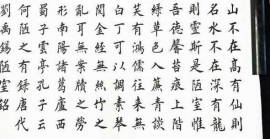 山不在高有仙則
名水不在深有龍
則靈斯是陋室惟
吾德馨苔痕上階
綠草色入簾青談
笑有鴻儒往來無
白丁可以調素琴
閱金經無絲竹之
亂耳無案牘之勞
形南陽諸葛廬西
蜀子雲亭孔子云
何陋之有錄唐代
劉禹錫陋室銘